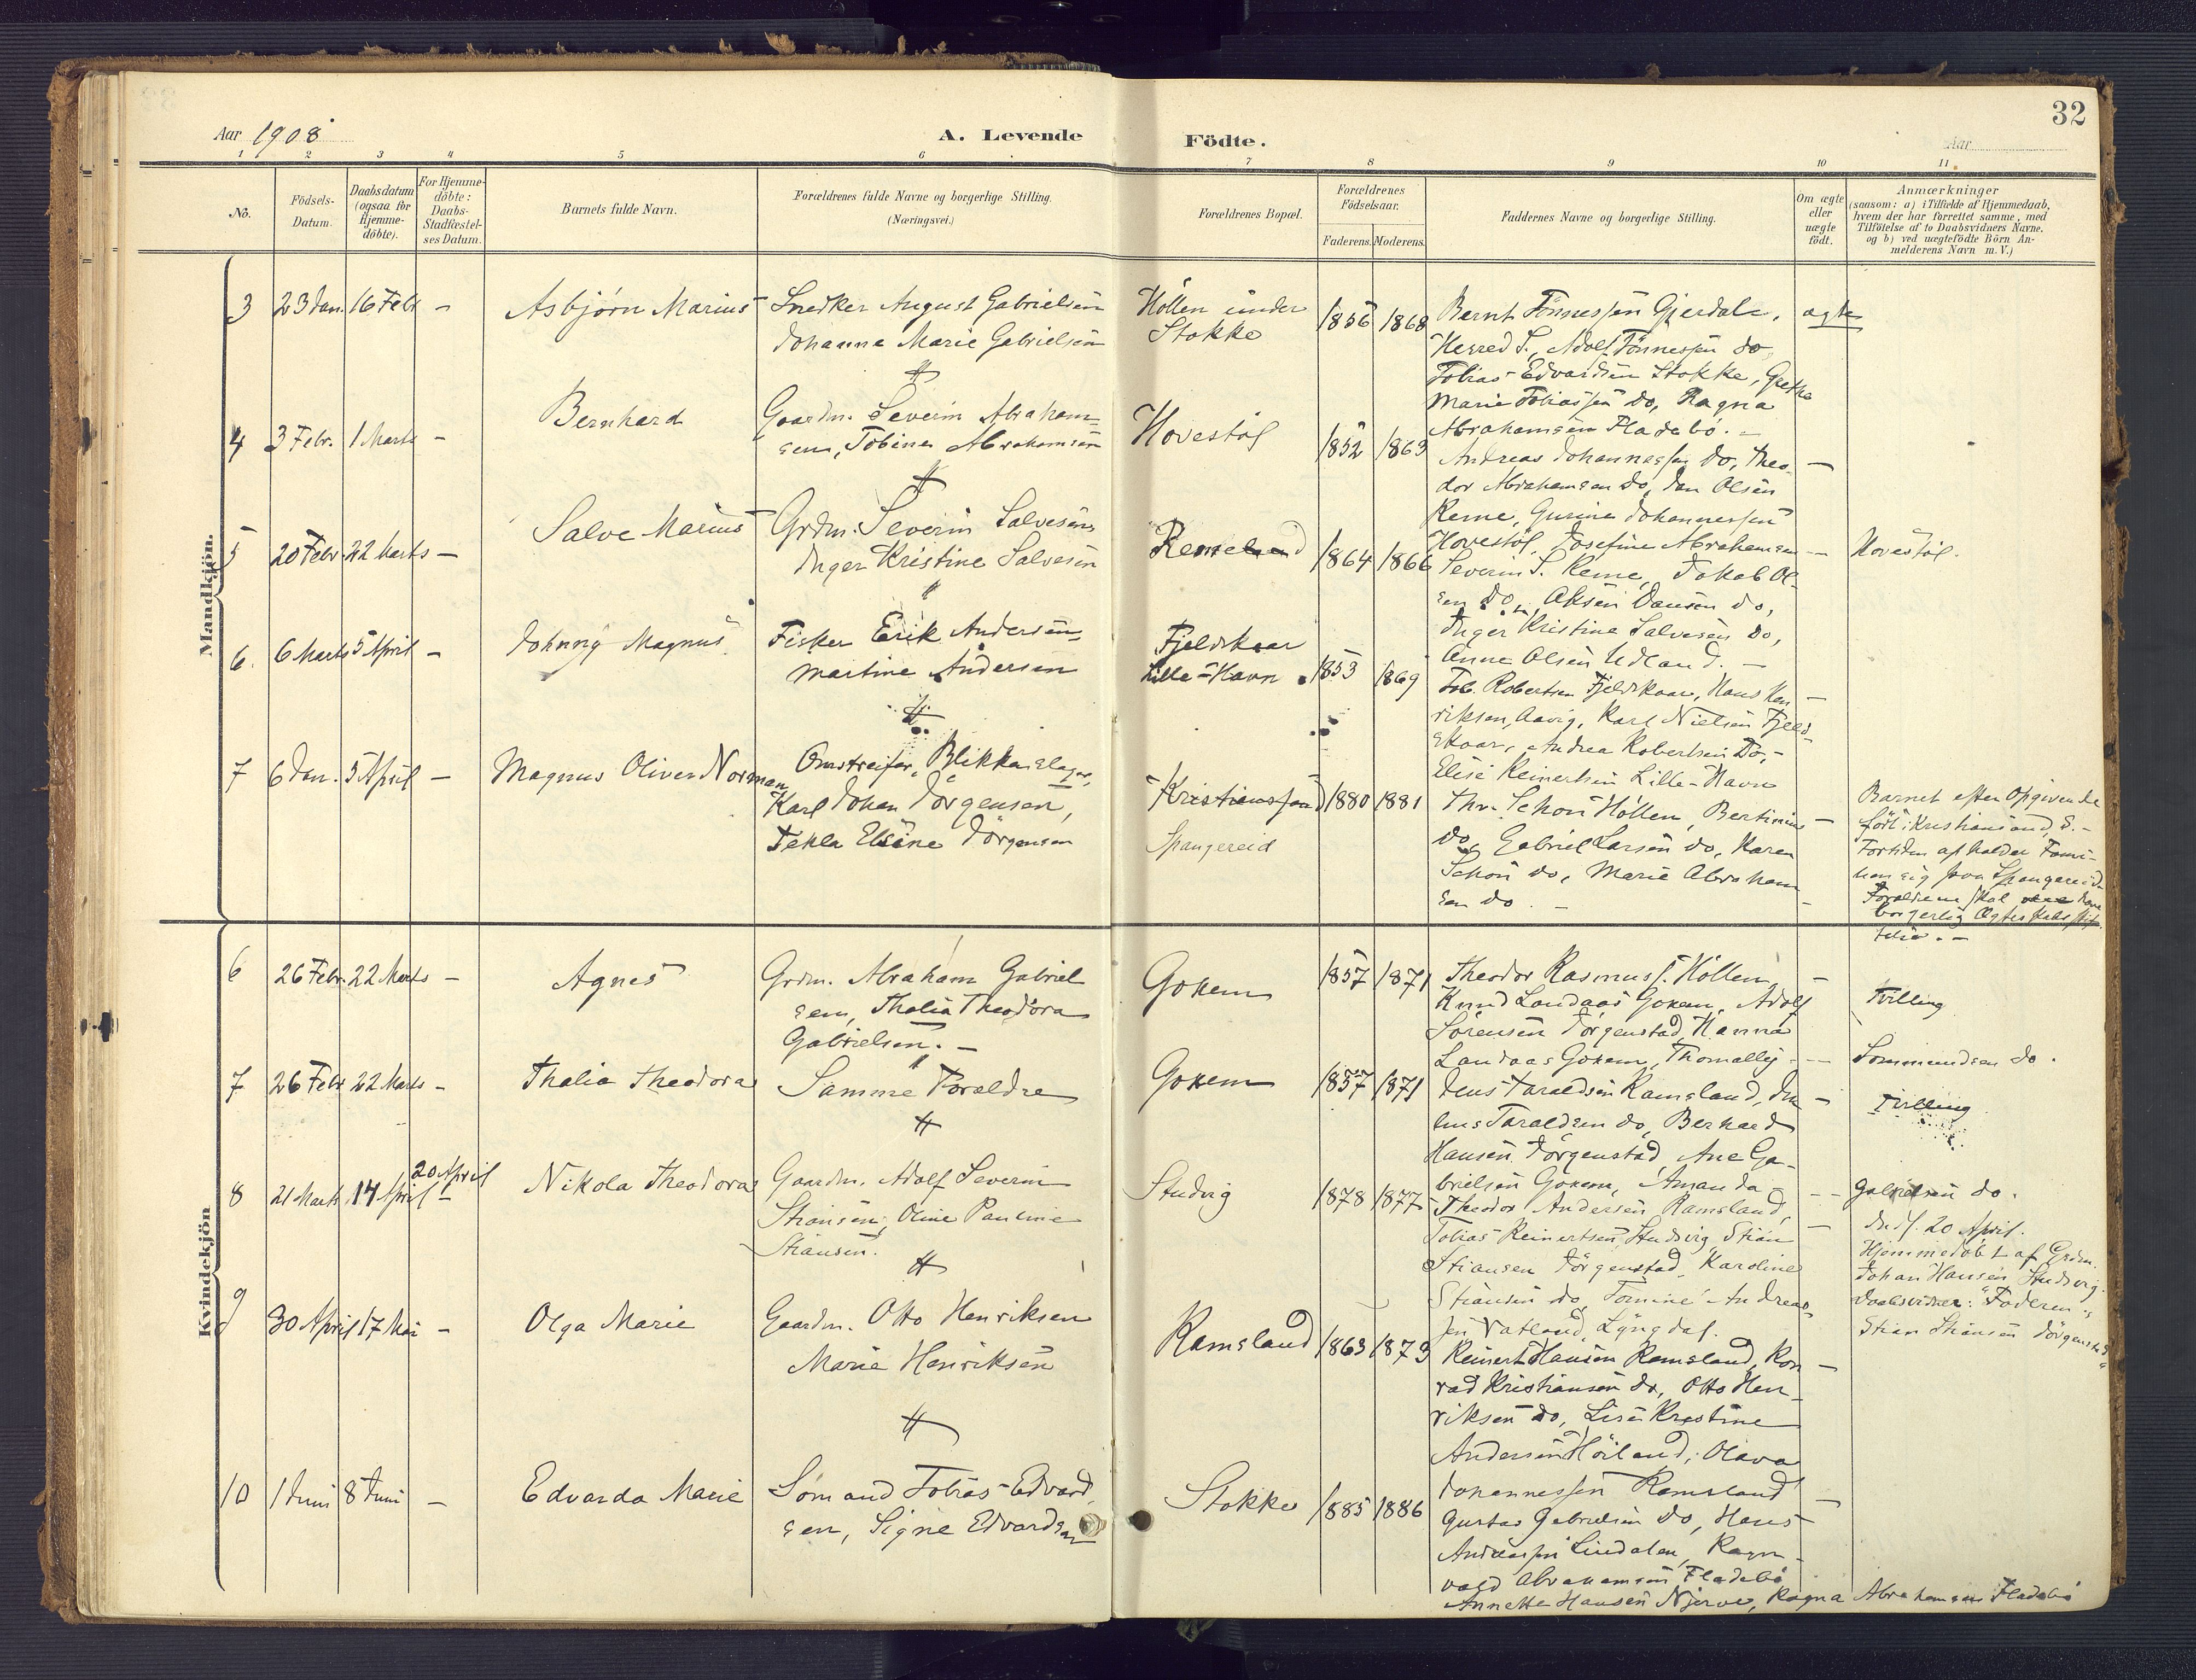 32
Aar 1908
A. Levende Födte.
Aar
1 2 3 4 5 6 7 8 9 10 11
No.
Födsels-
Datum.
Daabsdatum
(ogsaa för
Hjemme-
döbte).
For Hjemme-
döbte:
Daabs-
Stadfæstel-
ses Datum.
Barnets fulde Navn.
Forældrenes fulde Navne og borgerlige Stilling.
(Næringsvei.)
Forældrenes Bopæl.
Forældrenes
Födselsaar.
Faderens. Moderens.
Faddernes Navne og borgerlige Stilling.
Om ægte
eller
uægte
födt.
Anmærkninger
(saasom: a) i Tilfælde af Hjemmedaab,
hvem der har forrettet samme, med
Tilföielse af to Daabsvidners Navne.
og b) ved uægtefödte Börn An-
melderens Navn m. V.)
Mandkjön.
3 23 Jan. 16 Febr - Asbjørn Marius
Snedker August Gabrielsen
Johanna Marie Gabrielsen
Höllen under
Stokke
1856 1868
Bernt Tönnessen Gjerdale,
Herred S., Adolf Tönnessen do,
Tobias Edvardsen Stokke, Grethe
Marie Tobiassen do, Ragna
Abrahamsen Fladebö. -
ægte
4 3 Febr. 1 Marts - Bernhard
Gaardm. Severin Abraham-
sen, Tobine Abrahamsen
Hovestøl
1852 1863
Andreas Johannessen do, Theo-
dor Abrahamsen do, Jan Olsen
Reme, Gurine Johannessen
Hovestøl, Josefine Abrahamsen
-
Hovestøl.
5 20 Febr. 22 Marts - Salve Marius
Grdm. Severin Salvesen
Inger Kristine Salvesen
1864 1866
Severin S. Reme, Jakob Ol-
sen do, Aksen Dausen do,
Inger Kristine Salvesen do,
Anne Olsen Udland. -
6. 6 Marts 5 April - Johnny Magnus
Fisker Erik Andersen,
Martine Andersen
Fjeldskaar
Lille-Havn
1853 1869
Tob. Robertsen Fjeldskaar, Hans Hen-
riksen, Aavig, Karl Nielsen Fjeld-
skaar, Andrea Robertsen do, -
Elise Reinertsen Lille-Havn
-
7 6 Jan. 5 April - Magnus Oliver Norman
Omstreifer, Blikkenslager,
Karl Johan Jörgensen,
Tekla Elsine Jörgensen
Kristianssand
Spangereid
1880 1881
Thv. Schön Höllen, Bertinius
do, Gabriel Larsen do, Karen
Schön do, Marie Abraham-
sen do. -
-
Barnet efter Opgivende
født i Kristiansand, S. -
Fortiden opholder Fami-
lien sig paa Spangereid
Forældrene skal have
borgerlig Ægteskabsstif-
telse. -
Kvindekjön
6 26 Febr. 22 Marts - Agnes
Grdm. Abraham Gabriel
sen, Thalia Theodora
Gabrielsen. -
Gokem
1857 1871
Theodor Rasmuss. Höllen
Knud Landaas Gokem, Adolf
Sörensen Jörgenstad, Hanna
Landaas Gokem, Thomalley
-
Tvilling
Sommundsen do.
7 26 Febr 22 Marts - Thalia Theodora
Samme Forældre
Gokem
1857 1871
Jens Taraldsen Ramsland,
Taraldsen do, Berhard
Hansen Jörgenstad, Ane Ga-
brielsen Gokem, Amanda
-
Tvilling
Gabrielsen do.
8 21 Marts 14 April 20 April - Nikola Theodora
Gaardm. Adolf Severin
Stiansen, Oline Pauline
Stiansen.
Studvig
1878 1877
Theodor Andersen Ramsland,
Tobias Reinertsen Studvig, Stian
Stiansen Jörgenstad, Karoline
Stiansen do, Tomine Andreas-
sen Vatland, Lyngdal.
-
Ind. 20 April.
Hjemmedöbt af Grdm.
Johan Hansen Studvig.
Daabsvidner: Faderen,
Stian Stiansen Jörgenstad
9 30 April 17 Mai - Olga Marie
Gaardm. Otto Henriksen
Marie Henriksen
Ramsland
1863 1873
Reinert Hansen Ramsland, Kon-
rad Kristiansen do, Otto Hen-
riksen do, Lise Kristine
Andersen Höiland, Olava
Johannessen Ramsland
-
10 1 Juni 8 Juni - Edvarda Marie
Sömand Tobias Edvard
sen, Signe Edvardsen
Stokke
1885 1886
Gustav Gabrielsen do, Hans
Andreassen Lindalen, Ragn-
vald Abrahamsen Fladebö
Annette Hansen Njerve, Ragna Abrahamsen Fladebö
-